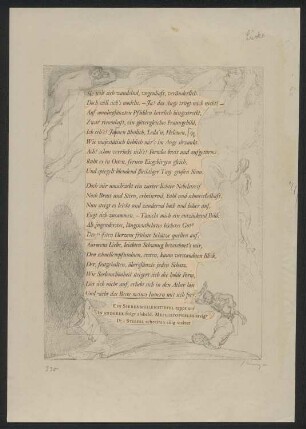 Sie löst sich wandelnd, wogenhaft, veränderlich.
Doch will sich's modeln. – Ja! das Auge trügt mich nicht! –
Auf sonnbeglänzten Pfühlen herrlich hingestreckt,
Zwar riesenhaft, ein göttergleiches Fraungebild,
Ich seh's! Junonen ähnlich, Leda'n, Helenen,
Wie majestätisch lieblich mir's im Auge schwankt.
Ach! schon verrückt sich's! Formlos breit und aufgetürmt
Ruht es in Osten, fernen Eisgebirgen gleich,
Und spiegelt blendend flücht'ger Tage großen Sinn.
Doch mir umschwebt ein zarter lichter Nebelstreif
Noch Brust und Stirn, erheiternd, kühl und schmeichelhaft.
Nun steigt es leicht und zaudernd hoch und höher auf,
Fügt sich zusammen. – Täuscht mich ein entzückend Bild,
Als jugenderstes, längstentbehrtes höchstes Gut?
Des tiefsten Herzens frühste Schätze quellen auf:
Aurorens Liebe, leichten Schwung bezeichnet's mir,
Den schnellempfundnen, ersten, kaum verstandnen Blick,
Der, festgehalten, überglänzte jeden Schatz.
Wie Seelenschönheit steigert sich die holde Form,
Löst sich nicht auf, erhebt sich in den Äther hin
Und zieht das Beste meines Innern mit sich fort.
EIN SIEBENMEILENSTIEFEL tappt auf
EIN ANDERER folgt alsbald. MEPHISTOPHELES steigt
DIE STIEFEL schreiten eilig weiter